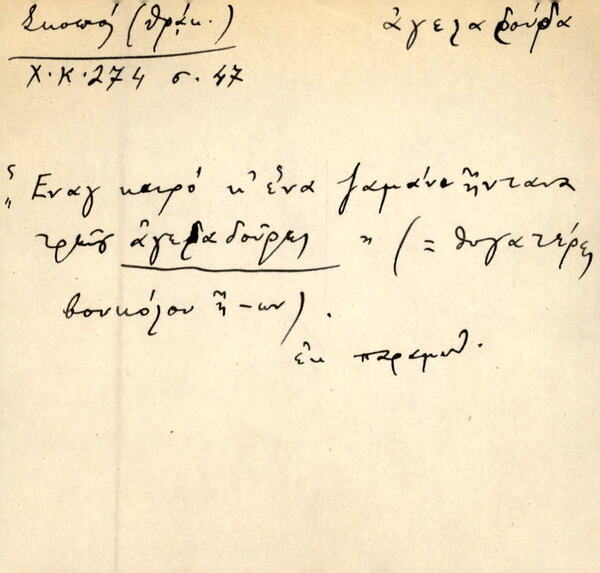 Σκοπός (Θράκ.) ἀγελαδούδα
Χ.Κ. 274 σ. 47
"Ἕναγ καιρό κ' ἕνα ζαμάνι ἤντανε
τρεῖς ἀγελαδοῦδες" (= θυγατέρες
βουκόλου ἤ -ων).
ἐκ παραμυθ.